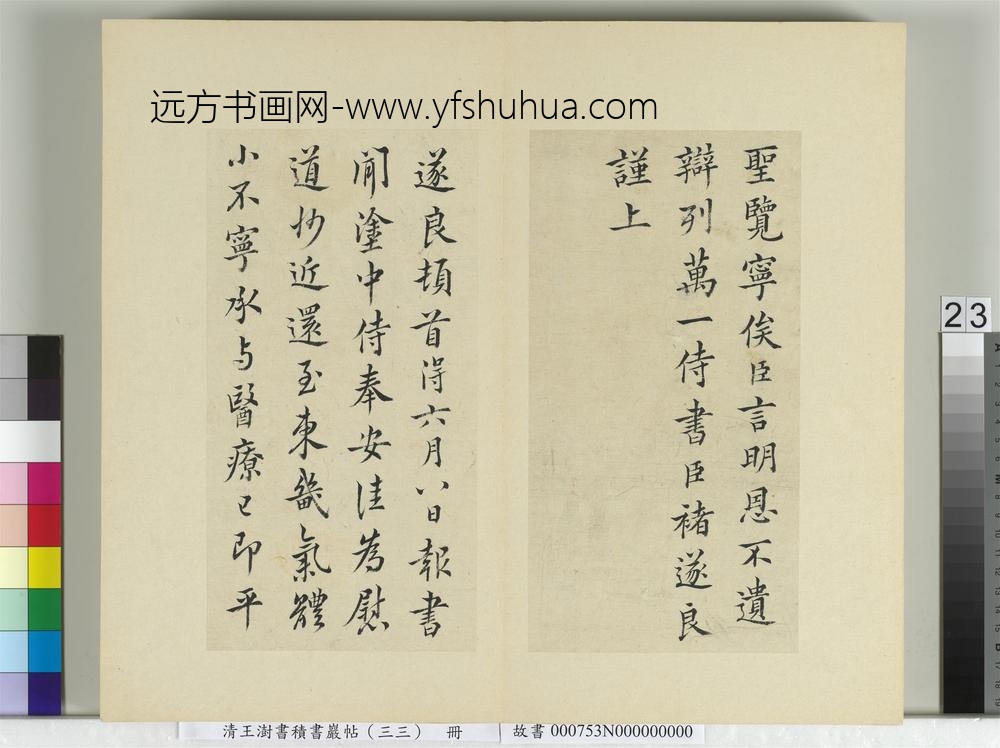 远方书画网-www.yfshuhua.com
聖覽寧俟臣言明恩不遺
辯列萬一侍書臣褚遂良
謹上
遂良頓首淂六月八日報書
聞塗中侍奉安佳為慰
道抄近還至東畿氣體
小不寧承与醫療已即平
23
清王澍書積書巖帖（三三） 冊
故書 000753N000000000